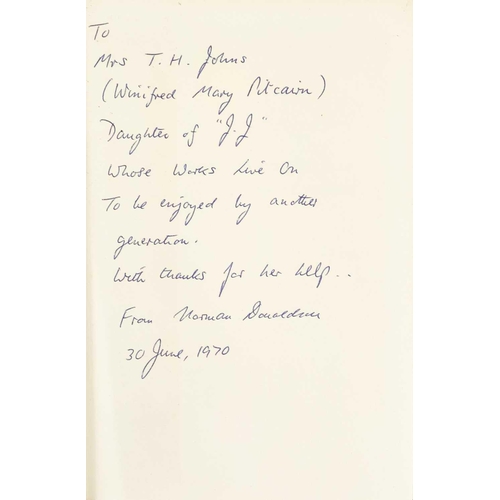 To
Mrs T. H. Johns
(Winifred Mary Pitcairn)
Daughter of "J.J"
Whose Works Live On
To be enjoyed by another
generation.
With thanks for her help..
From Norman Donaldson
30 June, 1970